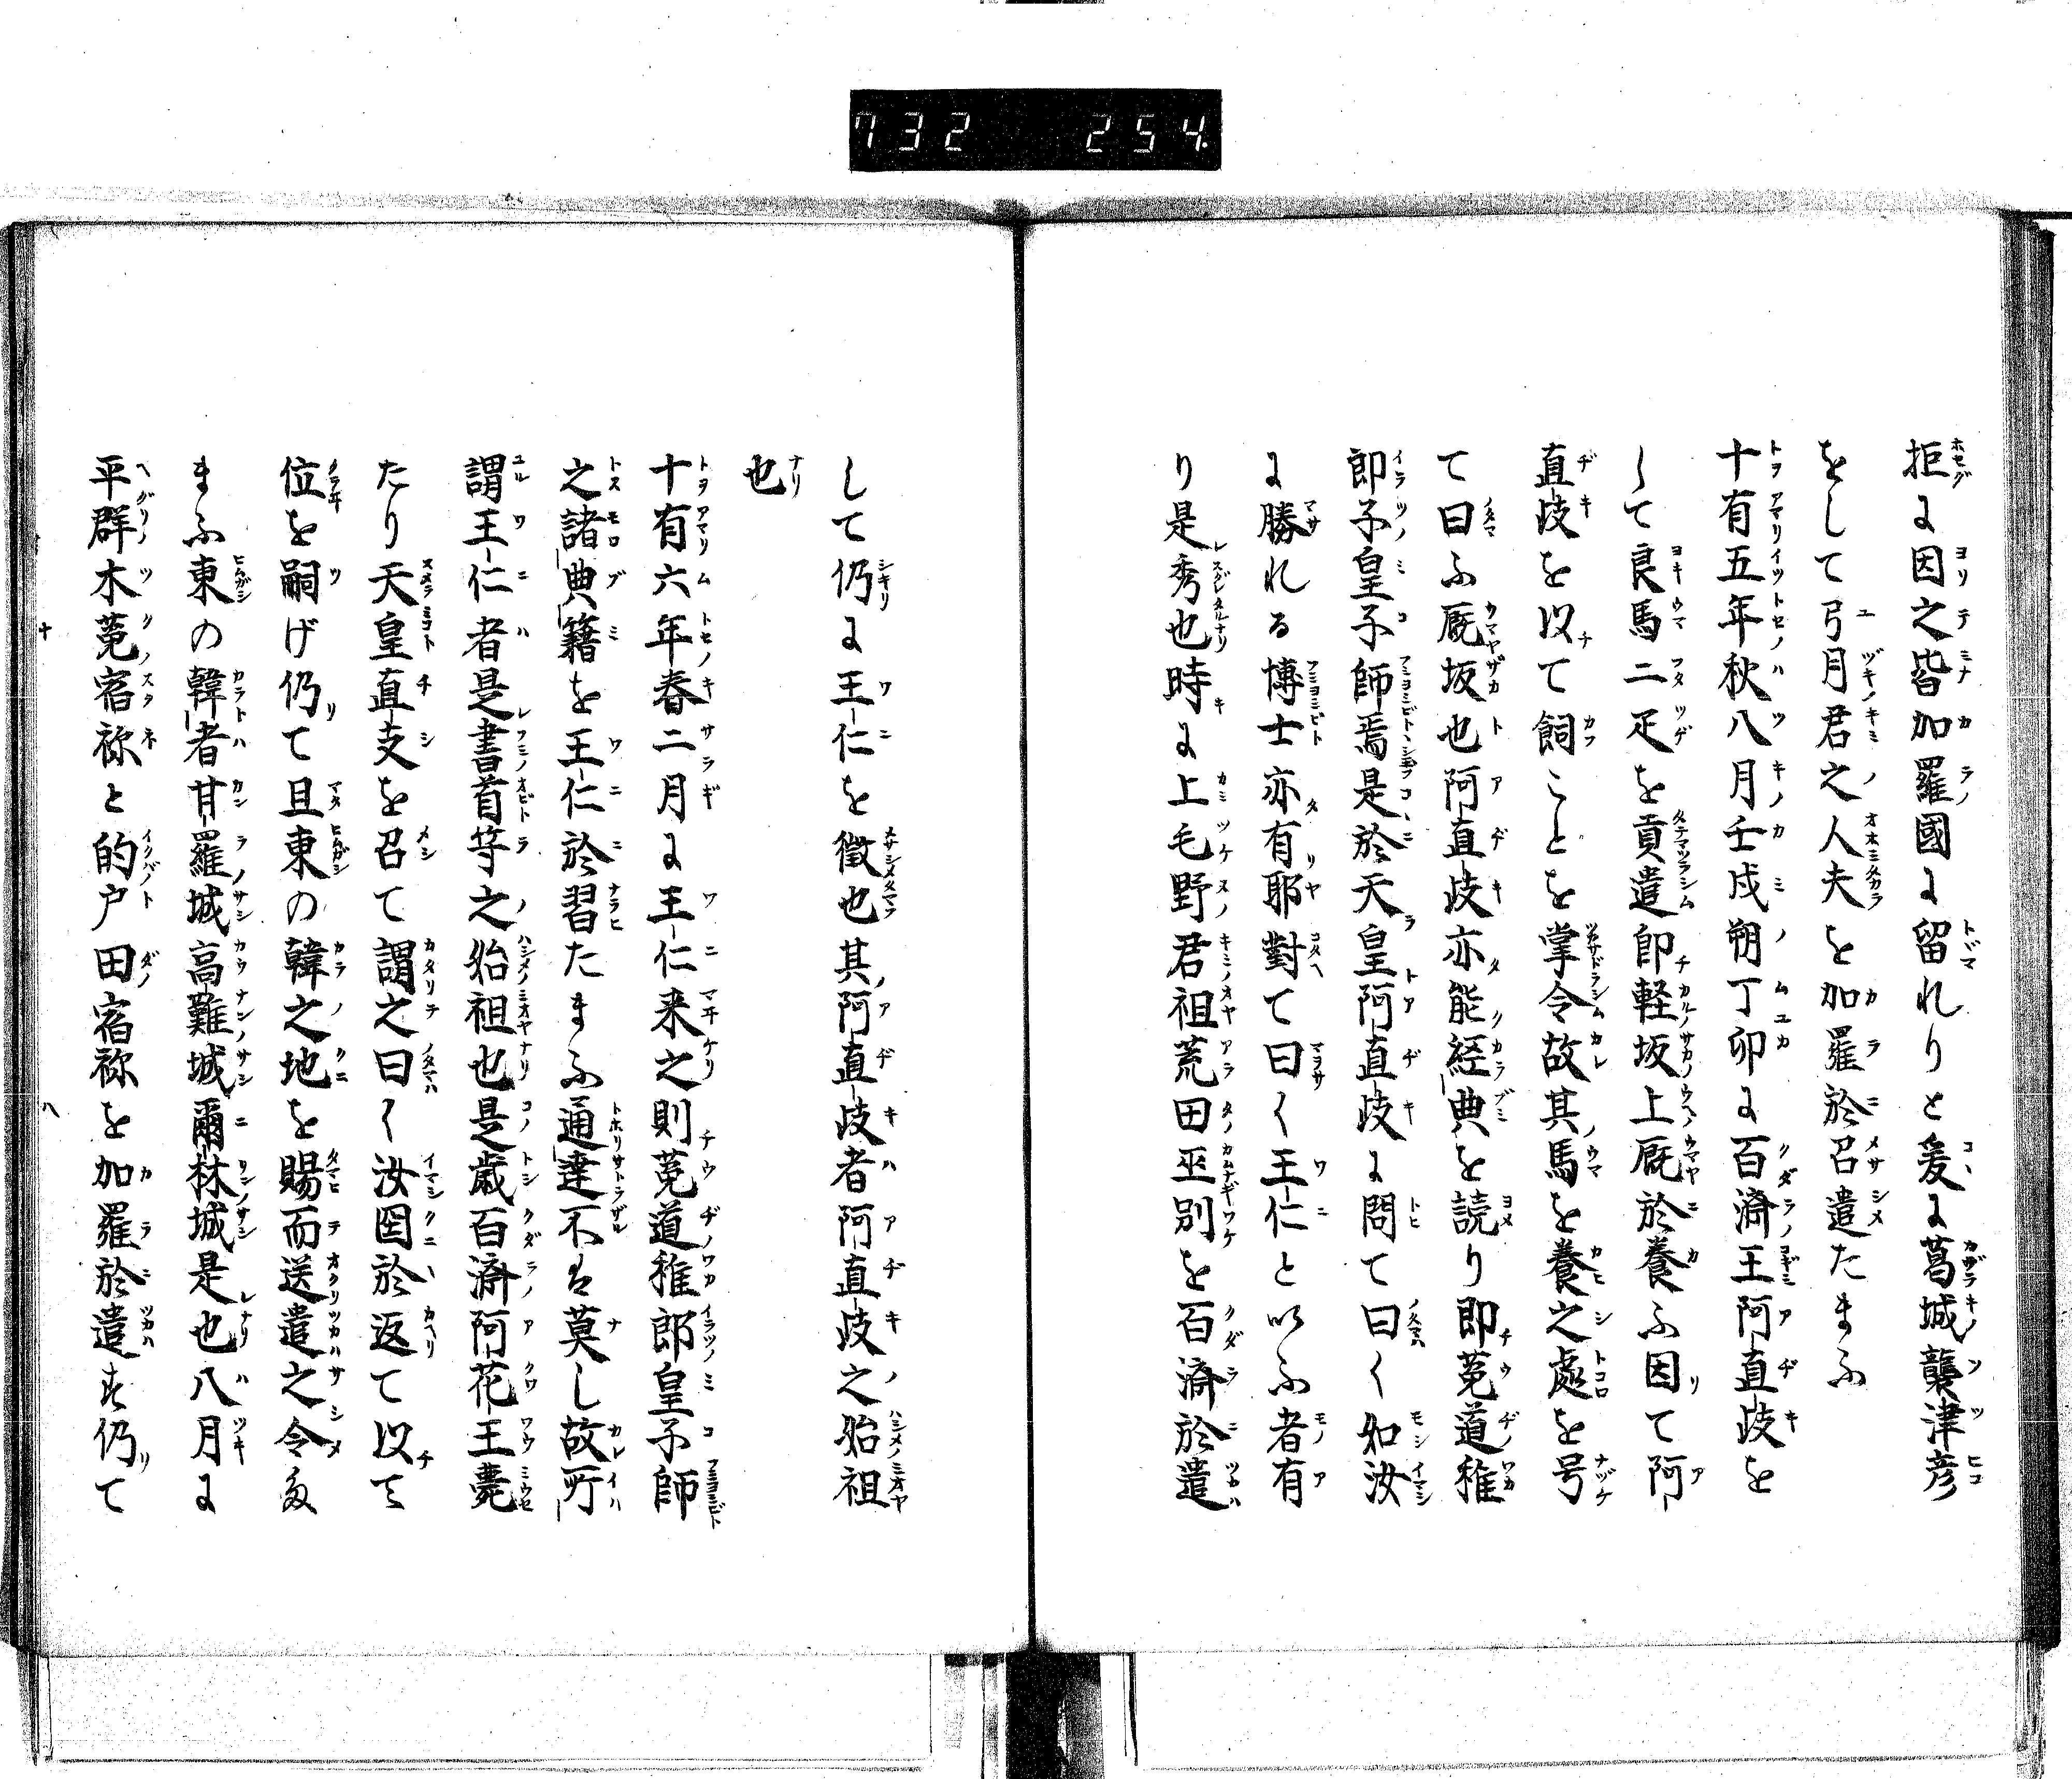 732 254
拒に因之皆加羅國に留れりと爰に葛城襲津彦
をして弓月君之人夫を加羅於召遣たまふ
十有五年秋八月壬戌朔丁卯に百濟王阿直歧を
して良馬二疋を貢遣即軽坂上厩於養ふ因て阿
直歧を以て飼ことを掌令故其馬を養之處を号
て曰ふ厩坂也阿直歧亦能経典を読り即菟道稚
郎子皇子師焉是於天皇阿直歧に問て曰く如汝
に勝れる博士亦有耶對て曰く王仁と以ふ者有
り是秀也時に上毛野君祖荒田巫別を百濟於遣
して仍に王仁を徴也其阿直歧者阿直歧之始祖
也
十有六年春二月に王仁来之則菟道稚郎皇子師
之諸典籍を王仁於習たまふ通達不る莫し故所
謂王仁者是書首等之始祖也是歳百濟阿花王薨
たり天皇直支を召て謂之曰く汝国於返て以て
位を嗣げ仍て且東の韓之地を賜而送遣之令た
まふ東の韓者甘羅城高難城爾林城是也八月に
平群木菟宿祢と的戸田宿祢を加羅於遣す仍て
十 八